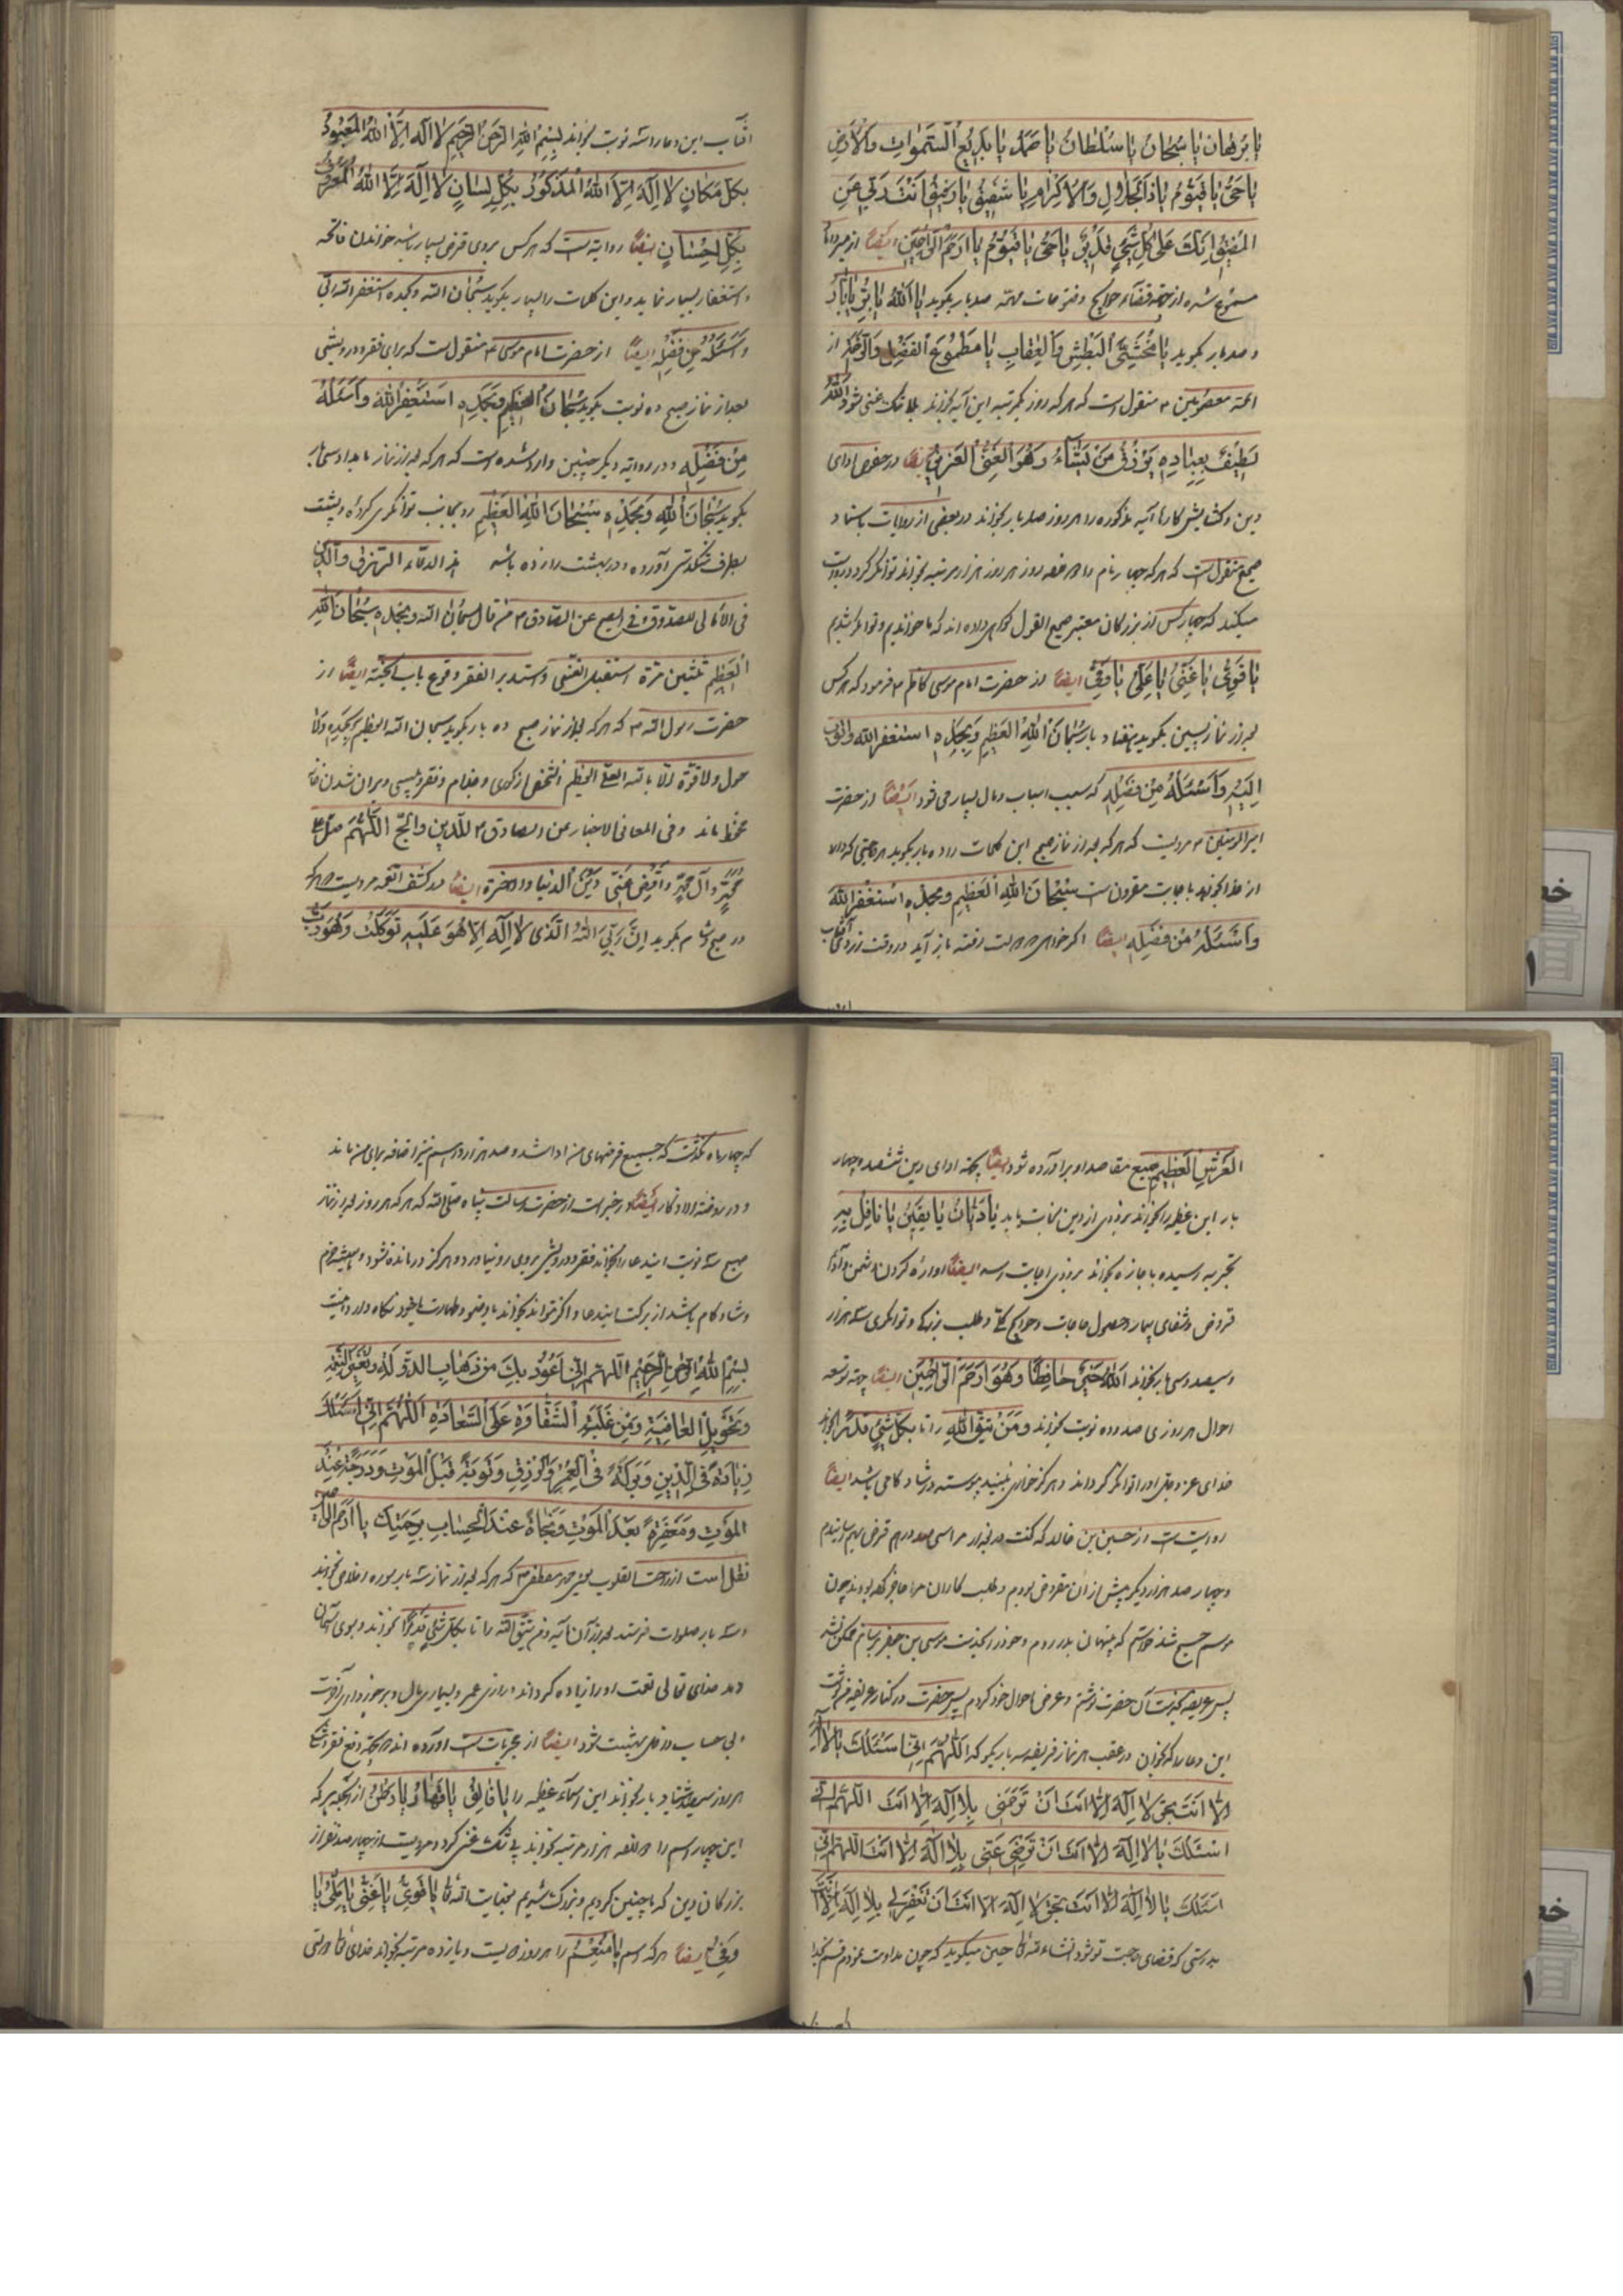 یا برهان یا سبحان یا سلطان یا صمد یا بدیع السموات والارض
یا حی یا قیوم یا ذا الجلال والاکرام یا شفیق یا رفیق انقذنی من
المضیق انک علی کل شیء قدیر یا حی یا قیوم یا ارحم الراحمین ایضا
مسموع شده از جهة قضاء حوایج و فتوحات مهمه صد بار بگوید یا الله یا بر یا بار
و صد بار بگوید یا مخشی البطش والعقاب یا مطموع الفضل والرحمة از
ائمه معصومین منقول است که هر که روز یکمرتبه این آیه بخواند بلا شک غنی شود الله
لطیف بعباده یرزق من یشاء وهو القوی العزیز ایضا در خصوص ادای
دین و گشایش کارها آیه مذکوره را هر روز صد بار بخواند در بعضی از روایات باسناد
صحیح منقول است که هر که چهار نام را هر روز هزار مرتبه بخواند توانگر گردد و روایت
میکنند که چهار کس از بزرگان معتبر صحیح القول گواهی داده اند که ما خواندیم و توانگر شدیم
یا قوی یا غنی یا علی یا وفی ایضا از حضرت امام موسی کاظم فرمود که هر کس
بعد از نماز پسین بگوید هفتاد بار سبحان الله العظیم وبحمده استغفر الله واتوب
الیه واسئله من فضله که سبب اسباب و مال بسیار می شود ایضا از حضرت
امیر المومنین مرویست که هر که بعد از نماز صبح این کلمات را ده بار بگوید هر حاجتی که دارد
از خدا بخواهد باجابت مقرون است سبحان الله العظیم وبحمده استغفر الله
واسئله من فضله ایضا اگر خواهی دولت رفته باز آید در وقت زردی آفتاب
آفتاب این دعا را سه نوبت بخواند بسم الله الرحمن الرحیم لا اله الا الله المعبود
بکل مکان لا اله الا الله المذکور بکل لسان لا اله الا الله المعروف
بکل احسان ایضا روایت است که هر کس بروی قرض بسیار باشد خواندن فاتحه
و استغفار بسیار نماید و این کلمات را بسیار بگوید سبحان الله وبحمده استغفر الله ربی
واسئله من فضله ایضا از حضرت امام موسی منقول است که برای فقر و درویشی
بعد از نماز صبح ده نوبت بگوید سبحان الله العظیم وبحمده استغفر الله واسئله
من فضله و در روایة دیگر چنین وارد شده است که هر که بعد از نماز بامداد سی بار
بگوید سبحان الله وبحمده سبحان الله العظیم رو بجانب توانگری کرده و پشت
بطرف تنگدستی آورده و در بهشت را زده باشد
فی الامالی للصدوق عن الصادق من قال سبحان الله وبحمده سبحان الله
العظیم ثلثین مرة استقبل الغنی واستدبر الفقر وقرع باب الجنة ایضا از
حضرت رسول الله که هر که بعد از نماز صبح ده بار بگوید سبحان الله العظیم وبحمده ولا
حول ولا قوة الا بالله العلی العظیم از کوری و جذام و فقر و ویران شدن خانه
محفوظ ماند و فی المعانی الاخبار عن الصادق للدین والحج اللهم صل علی
محمد وآل محمد واقض عنی دین الدنیا والاخرة ایضا در کشف الغمه مرویست هر که
در صبح و شام بگوید ان ربی الله الذی لا اله الا هو علیه توکلت وهو رب
العرش العظیم جمیع مقاصد او برآورده شود ایضا بجهة ادای دین ششصد و چهار
بار این عظیمه را بخواند بزودی از دین نجات یابد یا دیان
بتجربه رسیده با اجازه بخواند بزودی اجابت رسد ایضا آواره کردن دشمن و ادای
قروض و شفای بیمار و حصول حاجات و حوایج کلی و طلب بزرگی و توانگری سه هزار
و سیصد و سی بار بخواند الله خیر حافظا وهو ارحم الراحمین ایضا جهة توسعه
احوال هر روزی صد و ده نوبت بخواند ومن یتق الله را تا بکل شیء قدرا بخواند
خدای عز وجل او را توانگر گرداند و هرگز خواری نبیند پیوسته در شادکامی باشد ایضا
روایت است از حسین بن خالد که گفت در بغداد مرا سی صد درهم قرض بهم رسانیدم
و چهار صد هزار دیگر پیش از آن مقروض بودم و طلب کاران مرا عاجز کرده بودند چون
موسم حج شد خواستم که پنهان بدر روم و خود را بخدمت موسی بن جعفر برسانم ممکن نشد
پس عریضه بخدمت آن حضرت نوشتم و عرض احوال خود کردم پس حضرت در کنار عریضه نوشت
این دعا را که بخوان در عقب هر نماز فریضه سه بار بگو که اللهم انی اسئلک یا لا اله
الا انت بحق لا اله الا انت ان ترحمنی بلا اله الا انت اللهم انی
اسئلک یا لا اله الا انت ان ترضی عنی بلا اله الا انت اللهم انی
اسئلک یا لا اله الا انت بحق لا اله الا انت ان تغفر لی بلا اله الا انت
بدرستی که قضای حاجت تو شود انشاء الله تعالی حسین میگوید که چون مداومت نمودم قسم بخدا
که چهار ماه نگذشت که جمیع قرضهای من ادا شد و صد هزار درهم نیز اضافه برای من ماند
و در روضة الاذکار ایضا در خبر است از حضرت رسالت پناه صلی الله که هر که هر روز بعد از نماز
صبح سه نوبت اینعا را بخواند فقر و درویشی بروی رو نیاورد و هرگز درمانده نشود و همیشه خرم
و شادکام باشد از برکت ایندعا و اگر نتواند بخواند با وضو و طهارت با خود نگاه دارد
بسم الله الرحمن الرحیم اللهم انی اعوذ بک من ذهاب الدولة وتغیر النعمة
وتحویل العافیة ومن غلبة الشقاوة علی السعادة اللهم انی اسئلک
زیادة فی الدین وبرکة فی العمر والرزق وتوبة قبل الموت ودرجة عند
الموت ومغفرة بعد الموت ونجاة عند الحساب برحمتک یا ارحم الراحمین
نقل است از راحت القلوب یعنی محمد مصطفی که هر که بعد از نماز سه بار سوره اخلاص بخواند
و سه بار صلوات فرستد بعد از آن آیه ومن یتق الله را تا بکل شیء قدرا بخواند و بسوی آسمان
دمد خدای تعالی نعمت او را زیاده گرداند و درازی عمر و بسیاری مال و برخورداری آخرت
و بی حساب داخل بهشت شود ایضا از مجربات است آورده اند بجهة دفع فقر
هر روز سیصد و هشتاد بار بخواند این اسماء عظیمه را
این چهار اسم را هزار مرتبه بخواند بی شک غنی گردد مرویست از چهار صد نفر از
بزرگان دین که ما چنین کردیم و بزرگ شدیم بعنایات الله تعالی یا قوی یا غنی یا ملی یا
وفی ایضا هر که اسم یا منعم را هر روز دویست و یازده مرتبه بخواند خدای تعالی